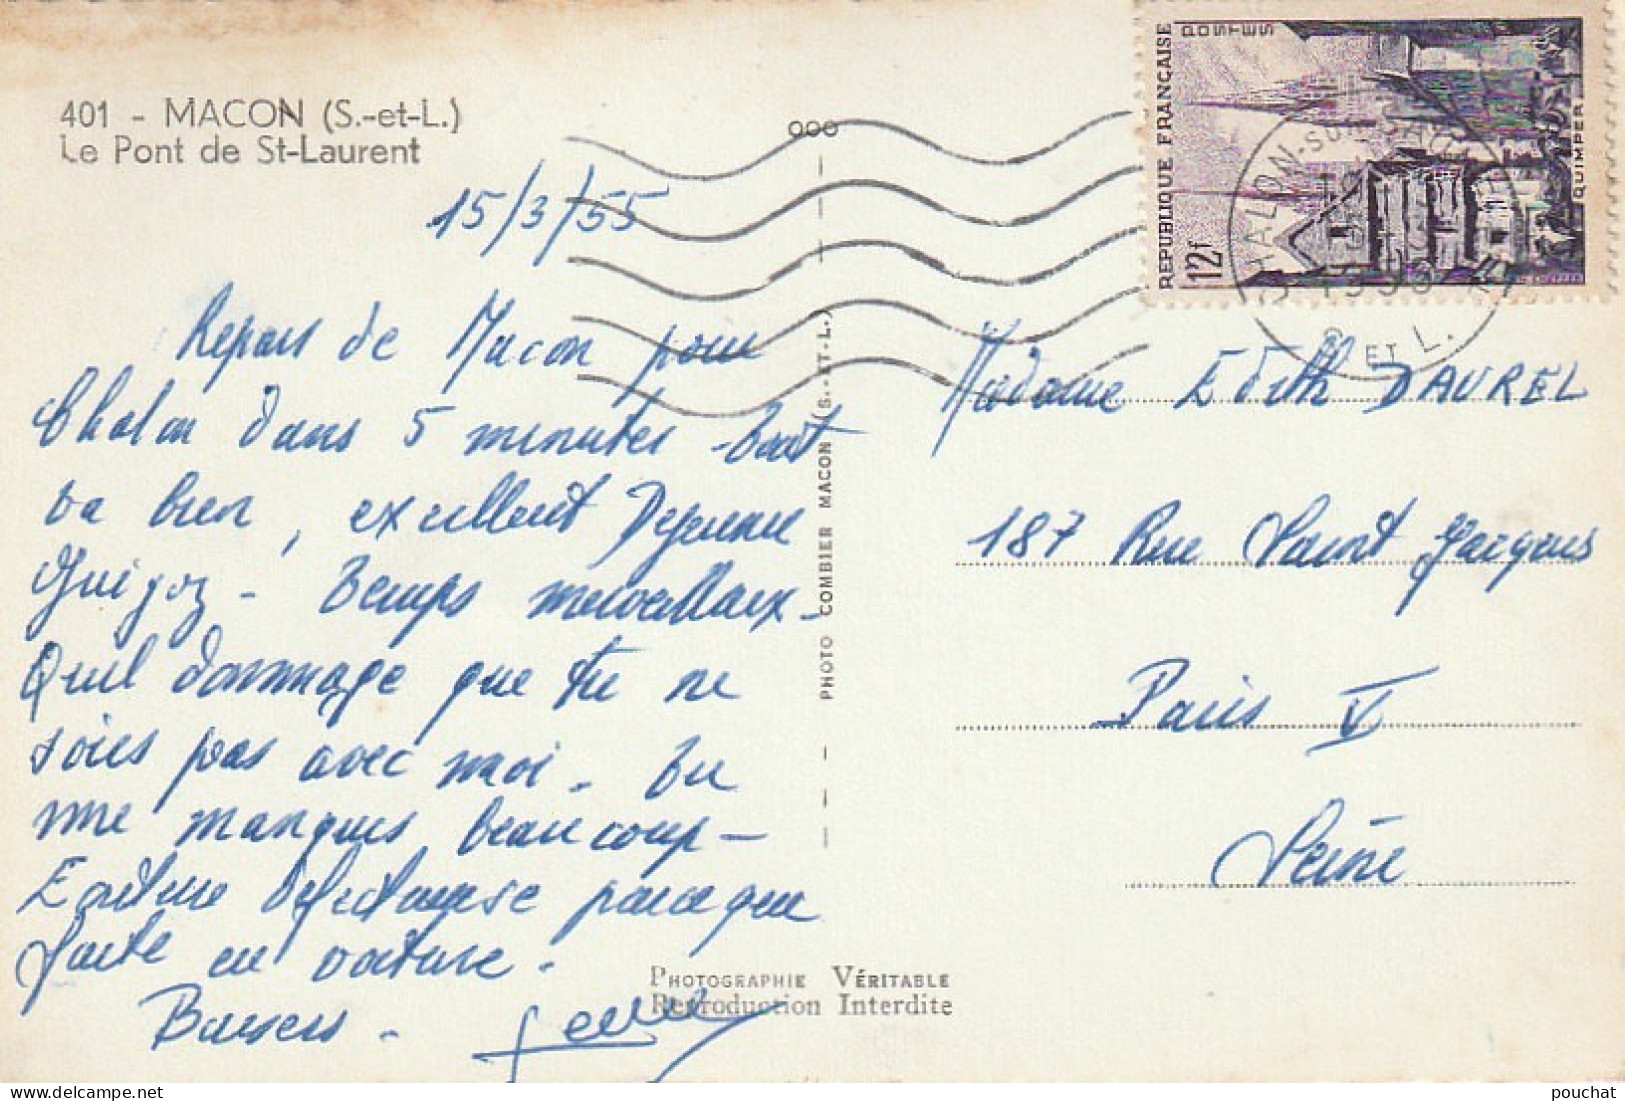 401 - MACON (S.-et-L.)
Le Pont de St-Laurent
15/3/55
Repars de Macon pour
Chalon dans 5 minutes tout
va bien, excellent Dejeuner
Guigoz - Temps merveilleux -
Quel dommage que tu ne
sois pas avec moi. Tu
me manques beaucoup -
Ecriture defectueuse parce que
faite en voiture.
Baisers -
PHOTO COMBIER MACON (S.-ET-L.)
PHOTOGRAPHIE VÉRITABLE
Reproduction Interdite
REPUBLIQUE FRANÇAISE
POSTES
12f
QUIMPER
CHALON-SUR-SAONE
S. ET L.
Madame Edith DAUREL
187 Rue Saint Jacques
Paris V
Seine
pouchat